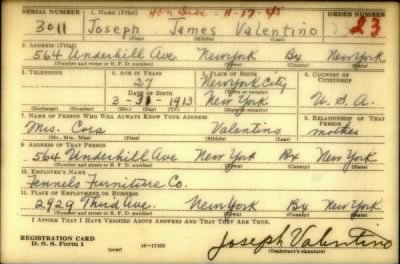 SERIAL NUMBER 1. NAME (Print) Hon Disc - 11-17-45 ORDER NUMBER
3011 Joseph James Valentino 23
(First) (Middle) (Last)
2. ADDRESS (Print)
564 Underhill Ave New York Bx New York
(Number and street or R. F. D. number) (Town) (County) (State)
3. TELEPHONE 4. AGE IN YEARS 5. PLACE OF BIRTH 6. COUNTRY OF CITIZENSHIP
27 New York City
DATE OF BIRTH (Town or county)
3-31-1913 New York U. S. A.
(Exchange) (Number) (Mo.) (Day) (Yr.) (State or country)
7. NAME OF PERSON WHO WILL ALWAYS KNOW YOUR ADDRESS 8. RELATIONSHIP OF THAT PERSON
Mrs. Cora Valentino mother
(Mr., Mrs., Miss) (First) (Middle) (Last)
9. ADDRESS OF THAT PERSON
564 Underhill Ave New York Bx New York
(Number and street or R. F. D. number) (Town) (County) (State)
10. EMPLOYER'S NAME
Fennels Furniture Co.
11. PLACE OF EMPLOYMENT OR BUSINESS
2929 Third Ave. New York Bx New York
(Number and street or R. F. D. number) (Town) (County) (State)
I AFFIRM THAT I HAVE VERIFIED ABOVE ANSWERS AND THAT THEY ARE TRUE.
REGISTRATION CARD
D. S. S. Form 1 (over) 16-17105 Joseph Valentino
(Registrant's signature)